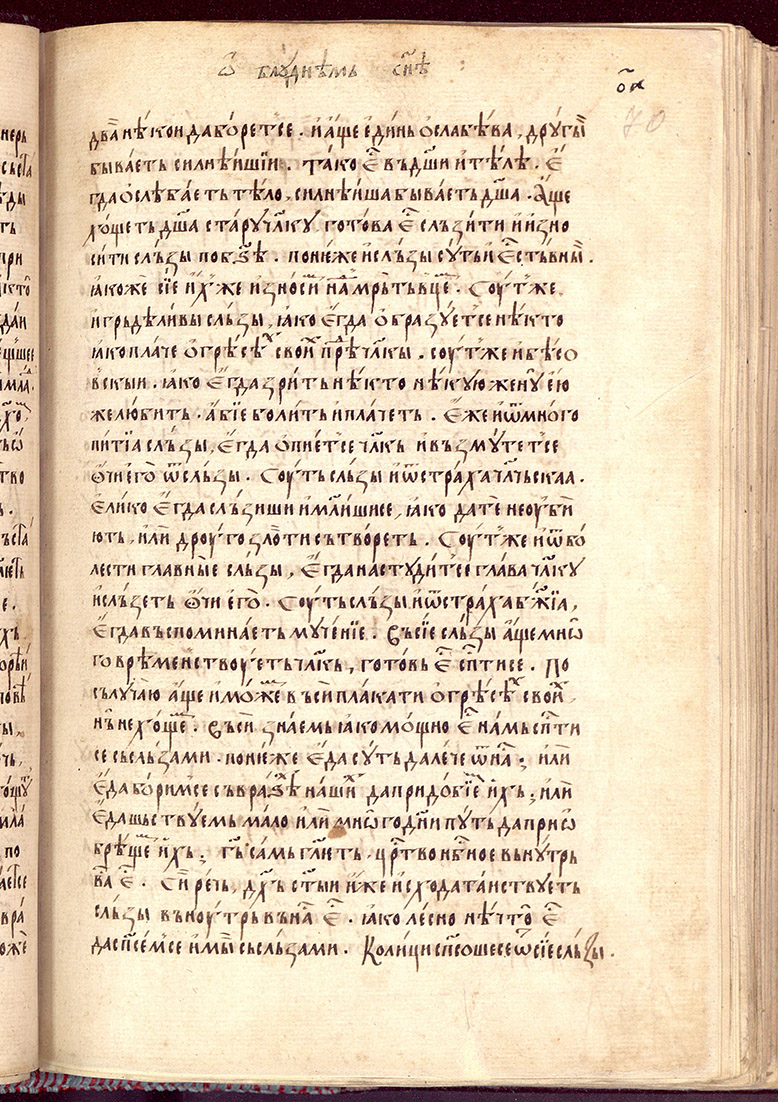 ѡ блꙋднѣмь сн҃ѣ
о҃
70
два̀ нѣ́кои да бо́ретсе . и҆ а҆́ще є҆ди́нь ѡ҆слабѣ́ва , дрꙋгы́и
быва́еть силнѣ́ишїи . та́ко є҆с҇ въ дш҃и и҆ тѣ́лѣ . Є҆
гда̀ ѡ҆слѣ́баеть тѣ́ло , силнѣ́иша быва́еть дш҃а . а҆́ще
хо́щеть дш҃а ста́рꙋ чл҃кꙋ гото́ва є҆с҇ слъзи́ти и҆ и҆зно
си́ти слъ́зы по бз҃ѣ . поне́же и҆ слъ́зы сꙋ́ть и҆ є҆сть́вныи҆ .
ꙗ҆́коже сїе и҆́хже и҆зно́сим на мрьтъвце . Соꙋ́тже
и҆ грьдѣли́вы сль́зы , ꙗ҆́ко є҆гда̀ ѡ҆бразꙋ́етсе нѣ́кто
ꙗ҆́ко пла́че ѡ҆ грѣсѣ́х свои҆х прѣ́ чл҃кы . соꙋ́тже и҆ бѣсо́
вскыи . ꙗ҆́ко є҆гда̀ зри́ть нѣ́кто нѣ́кꙋю женꙋ̀ ею҆
же лю́бить . а҆́бїе боли́ть и҆ пла́четь . Є҆́же и҆ ѿ мно́го
пи́тїа слъ́зы , є҆гда̀ ѡ҆пїе́тсе чл҃кь и҆ възмꙋ́тетсе
ѻ҆́чи є҆го̀ ѿ сль́зы . Соꙋ́ть сль́зы и҆ ѿ стра́ха чл҃чьскаа .
є҆ли́ко є҆гда̀ слъзи́ши и҆ мл҃и́шисе , ꙗ҆́ко да тѐ не ѹ҆бїи́
ють , и҆лѝ дрꙋ́го зло̀ ти сътво́реть . Соꙋ́тже и҆ ѿ бо
лести гла́вныѥ сль́зы , є҆гда̀ настꙋди́тсе глава̀ чл҃кꙋ
и҆ слъ́зеть ѻ҆́чи є҆го̀ . Соꙋ́ть слъ́зы и҆ ѿ стра́ха бж҃їа ,
є҆гда̀ въспомина́еть мꙋче́нїе . Въ сїе сль́зы а҆́ще мнѡ́
го врѣ́мени творꙋ́еть чл҃кь , гото́вь є҆с҇ сп҃ти се . По
сълꙋ́чаю а҆́ще и҆ мо́же въсѝ пла́кати ѡ҆ грѣсѣ́х свои҆х ,
нь̀ не хо́ще . Въсѝ зна́емь ꙗ҆́ко мо́щно є҆с҇ на́мь сп҃ти
се сь сльза́ми . поне́же є҆да̀ сꙋ́ть дале́че ѿ на́с ; и҆лѝ
є҆да̀ бо́римсе съ вра́зѣ на́шим да придо́бїем и҆́хь ; и҆лѝ
є҆да̀ шьствꙋ́емь ма́ло и҆лѝ мнѡ́го дн҃и пꙋть да приѡ
брѣ́щем и҆́хь ; гь҃ са́мь гл҃еть . цр҃тво нб҃ное вьнꙋ́трь
ва̀с є҆с҇ . Си́рѣчь , дх҃ь ст҃ыи и҆́же и҆схода́таиствꙋеть
сль́зы вьноꙋ́трь въ на̀с є҆с҇ . ꙗ҆́ко ле́сно нѣ́что є҆с҇
да сп҃семсе и҆ мы̀ сь сльза́ми . Коли́ци сп҃со́ше се ѿ сїе сль́зы .